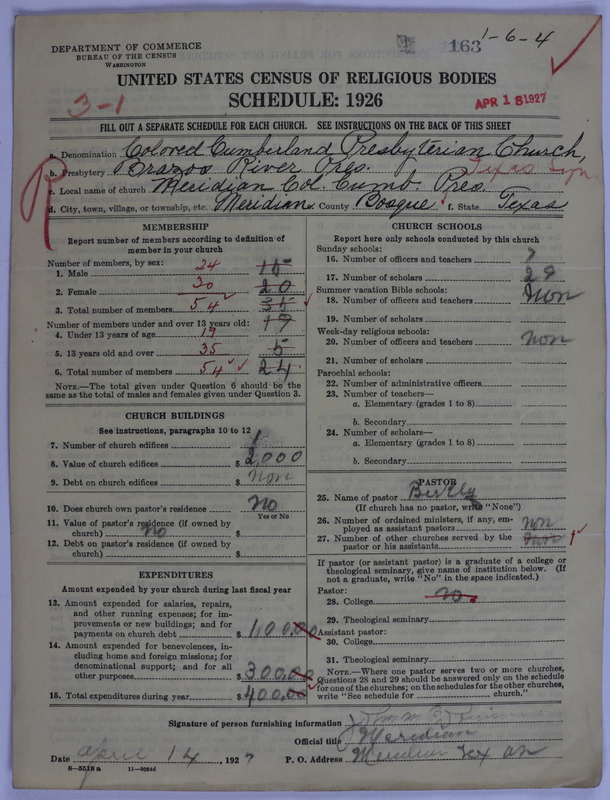 DEPARTMENT OF COMMERCE
BUREAU OF THE CENSUS
WASHINGTON
163
1-6-4
UNITED STATES CENSUS OF RELIGIOUS BODIES
SCHEDULE: 1926
3-1
APR 18 1927
FILL OUT A SEPARATE SCHEDULE FOR EACH CHURCH. SEE INSTRUCTIONS ON THE BACK OF THIS SHEET
a. Denomination Colored Cumberland Presbyterian Church,
b. Presbytery Brazos River Pres. Texas Syn.
c. Local name of church Meridian Col. Cumb. Pres.
d. City, town, village, or township, etc. Meridian e. County Bosque f. State Texas
MEMBERSHIP
Report number of members according to definition of
member in your church
Number of members, by sex:
1. Male 24 15
2. Female 30 20
3. Total number of members 54 35
Number of members under and over 13 years old:
4. Under 13 years of age 19 19
5. 13 years old and over 35 5
6. Total number of members 54 24
NOTE.—The total given under Question 6 should be the
same as the total of males and females given under Question 3.
CHURCH BUILDINGS
See instructions, paragraphs 10 to 12
7. Number of church edifices 1
8. Value of church edifices $ 2,000
9. Debt on church edifices $ non
10. Does church own pastor's residence? no
Yes or No
11. Value of pastor's residence (if owned by
church) no $
12. Debt on pastor's residence (if owned by
church) $
EXPENDITURES
Amount expended by your church during last fiscal year
13. Amount expended for salaries, repairs,
and other running expenses; for im-
provements or new buildings; and for
payments on church debt $ 100.00
14. Amount expended for benevolences, in-
cluding home and foreign missions; for
denominational support; and for all
other purposes $ 300.00
15. Total expenditures during year $ 400.00
CHURCH SCHOOLS
Report here only schools conducted by this church
Sunday schools:
16. Number of officers and teachers 7
17. Number of scholars 29
Summer vacation Bible schools:
18. Number of officers and teachers non
19. Number of scholars
Week-day religious schools:
20. Number of officers and teachers non
21. Number of scholars
Parochial schools:
22. Number of administrative officers
23. Number of teachers—
a. Elementary (grades 1 to 8)
b. Secondary
24. Number of scholars—
a. Elementary (grades 1 to 8)
b. Secondary
PASTOR
25. Name of pastor
(If church has no pastor, write "None")
26. Number of ordained ministers, if any, em-
ployed as assistant pastors non
27. Number of other churches served by the
pastor or his assistants 1
If pastor (or assistant pastor) is a graduate of a college or
theological seminary, give name of institution below. (If
not a graduate, write "No" in the space indicated.)
Pastor:
28. College no
29. Theological seminary
Assistant pastor:
30. College
31. Theological seminary
NOTE.—Where one pastor serves two or more churches,
Questions 28 and 29 should be answered only on the schedule
for one of the churches; on the schedules for the other churches,
write "See schedule for church."
Signature of person furnishing information
Official title Meridian
Date april 14, 1927 P. O. Address Meridian Tex
8-5518a 11-9264d